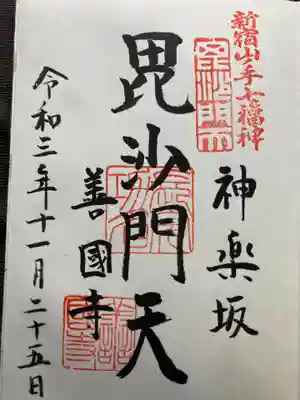 新宿山ノ手七福神
神楽坂
毘沙門天
善國寺
令和三年十一月二十五日